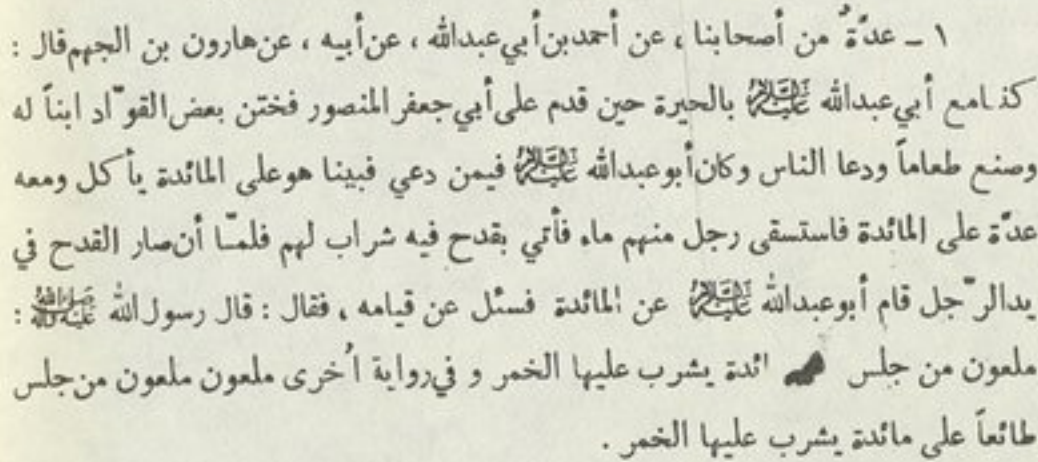 ١ ـ عدّةٌ من أصحابنا ، عن أحمدبن أبي عبدالله ، عن أبيه ، عن هارون بن الجهم قال :
كنّا مع أبي عبدالله عليه السلام بالحيرة حين قدم على أبي جعفر المنصور فختن بعض القوّاد ابناً له
وصنع طعاماً ودعا الناس وكان أبوعبدالله عليه السلام فيمن دعي فبينا هو على المائدة يأكل ومعه
عدّة على المائدة فاستسقى رجل منهم ماء فأتي بقدح فيه شراب لهم فلمّا أن صار القدح في
يد الرّجل قام أبوعبدالله عليه السلام عن المائدة فسئل عن قيامه ، فقال : قال رسول الله صلى الله عليه وآله :
ملعون من جلس ائدة يشرب عليها الخمر و في رواية اُخرى ملعون ملعون من جلس
طائعاً على مائدة يشرب عليها الخمر .